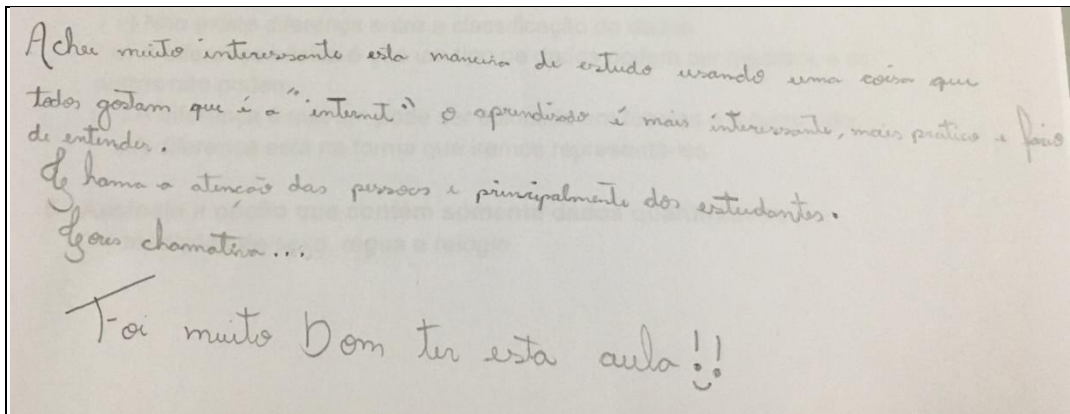 Achei muito interessante esta maneira de estudo usando uma coisa que
todos gostam que é a "internet" o aprendisado é mais interessante, mais pratico e facio
de entender.
Chama a atenção das pessoas e principalmente dos estudantes.
chamativa...
Foi muito Bom ter esta aula!!